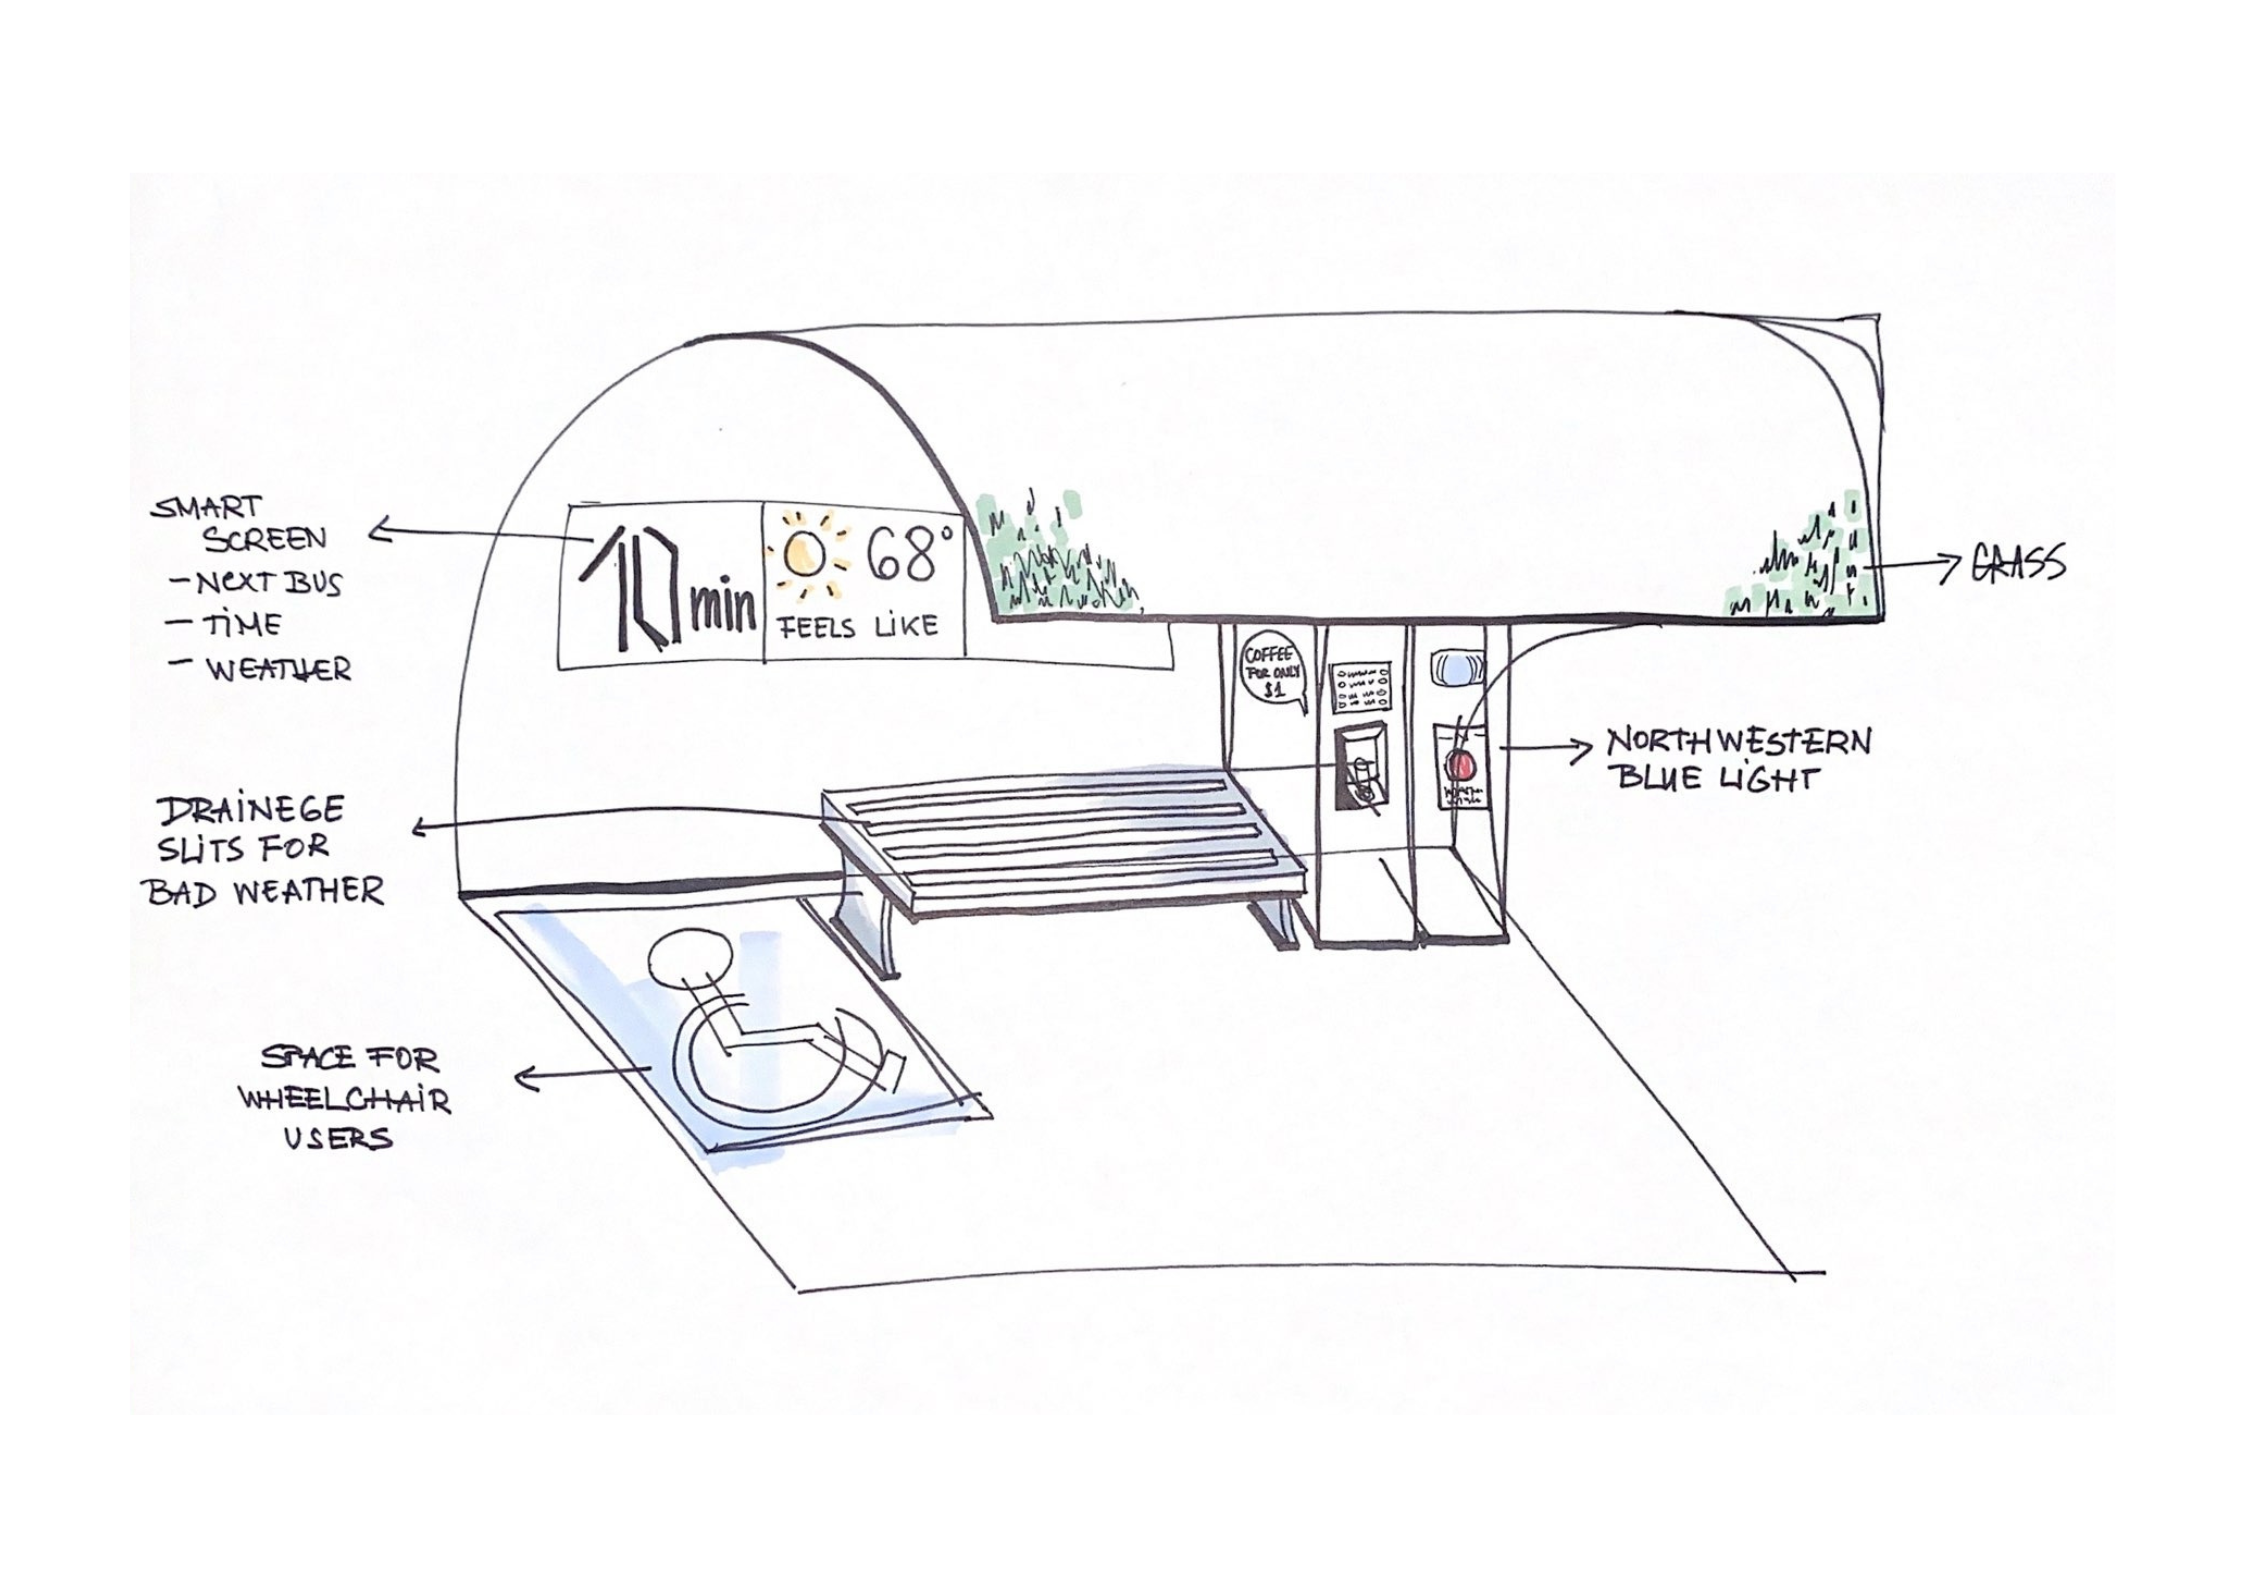 SMART
SCREEN
- NEXT BUS
- TIME
- WEATHER
10 min
68°
FEELS LIKE
GRASS
COFFEE
FOR ONLY
$1
NORTHWESTERN
BLUE LIGHT
DRAINEGE
SLITS FOR
BAD WEATHER
SPACE FOR
WHEELCHAIR
USERS